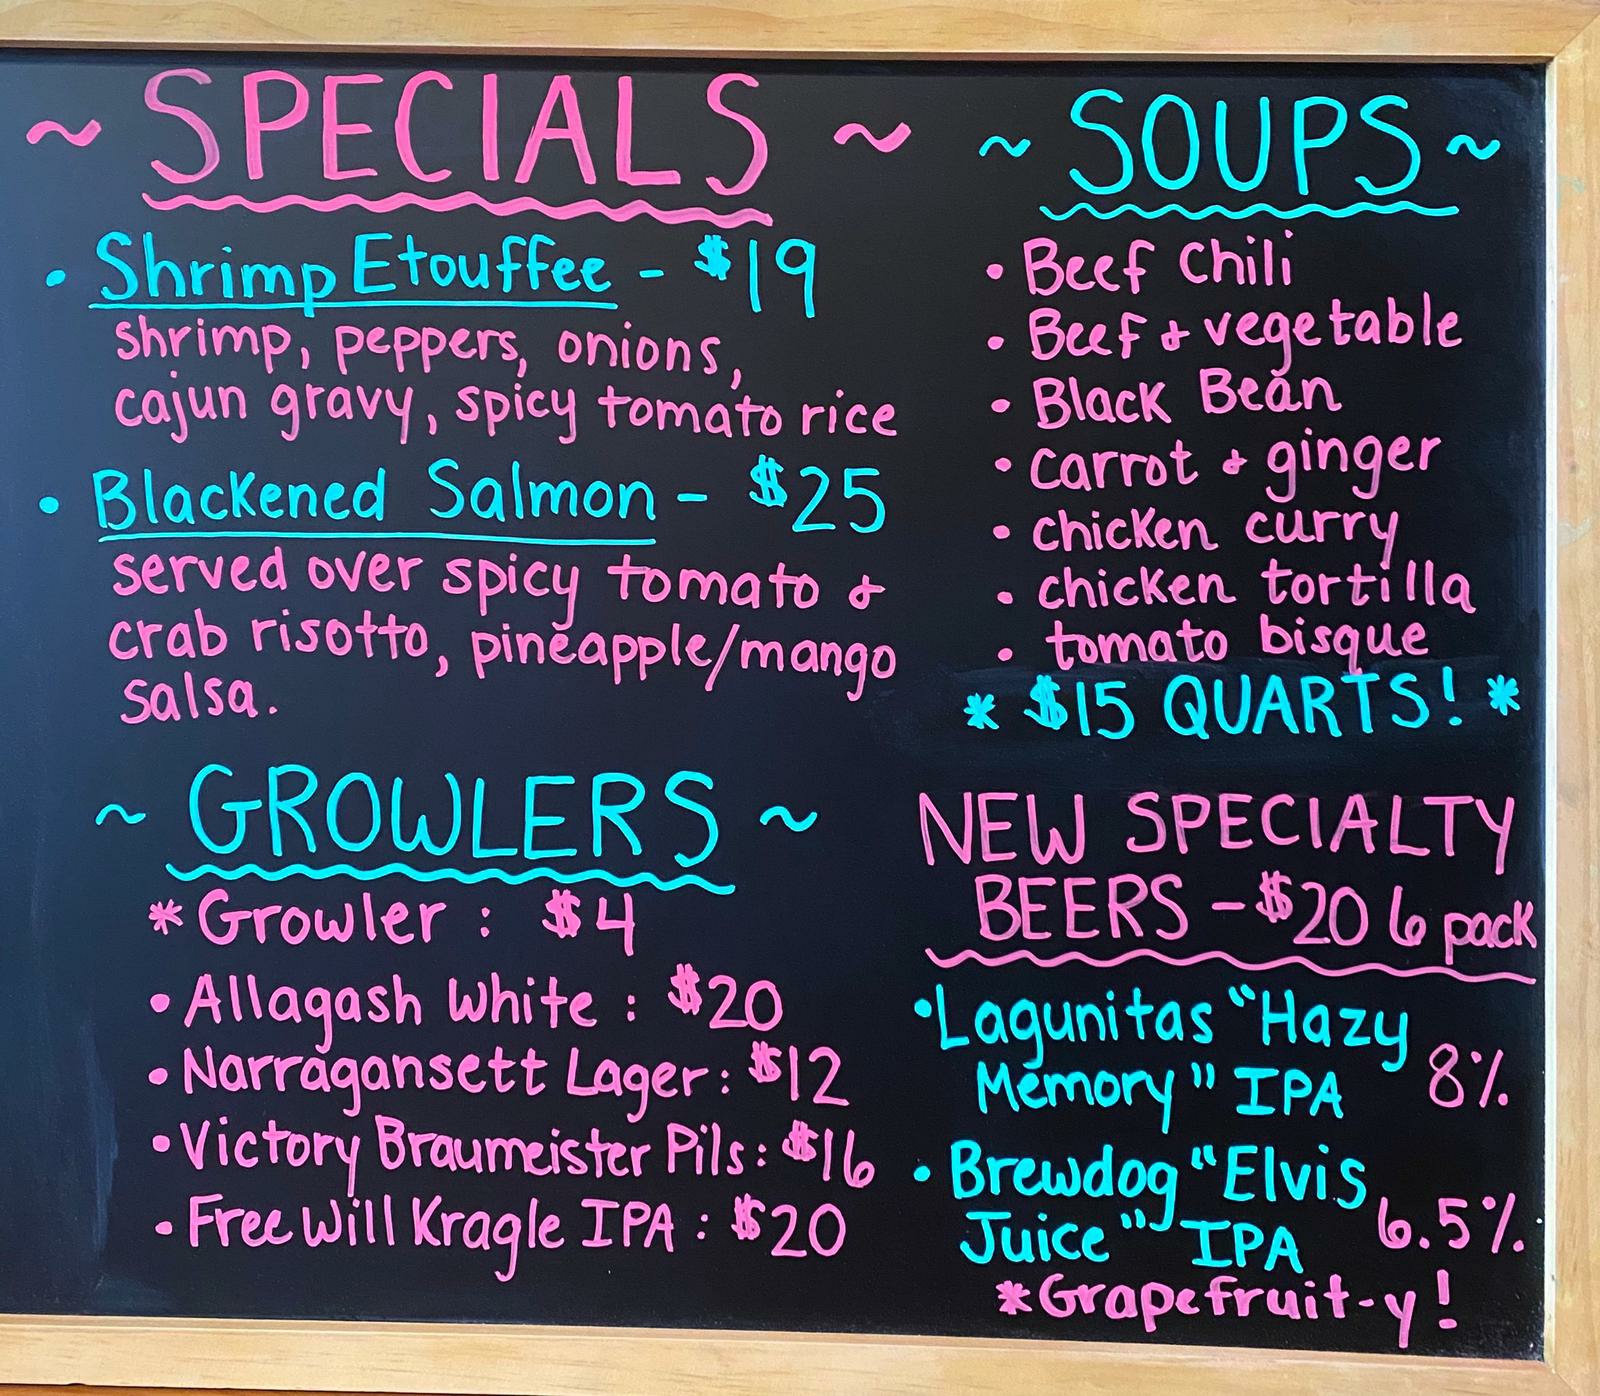 ~ SPECIALS ~
• Shrimp Etouffee - $19
shrimp, peppers, onions,
cajun gravy, spicy tomato rice
• Blackened Salmon - $25
served over spicy tomato &
crab risotto, pineapple/mango
salsa.
~ SOUPS ~
• Beef Chili
• Beef & vegetable
• Black Bean
• carrot & ginger
• chicken curry
• chicken tortilla
• tomato bisque
* $15 QUARTS! *
~ GROWLERS ~
* Growler : $4
• Allagash White : $20
• Narragansett Lager : $12
• Victory Braumeister Pils : $16
• Free Will Kragle IPA : $20
NEW SPECIALTY
BEERS - $20 6 pack
• Lagunitas "Hazy
Memory" IPA 8%
• Brewdog "Elvis
Juice" IPA 6.5%
*Grapefruit-y!